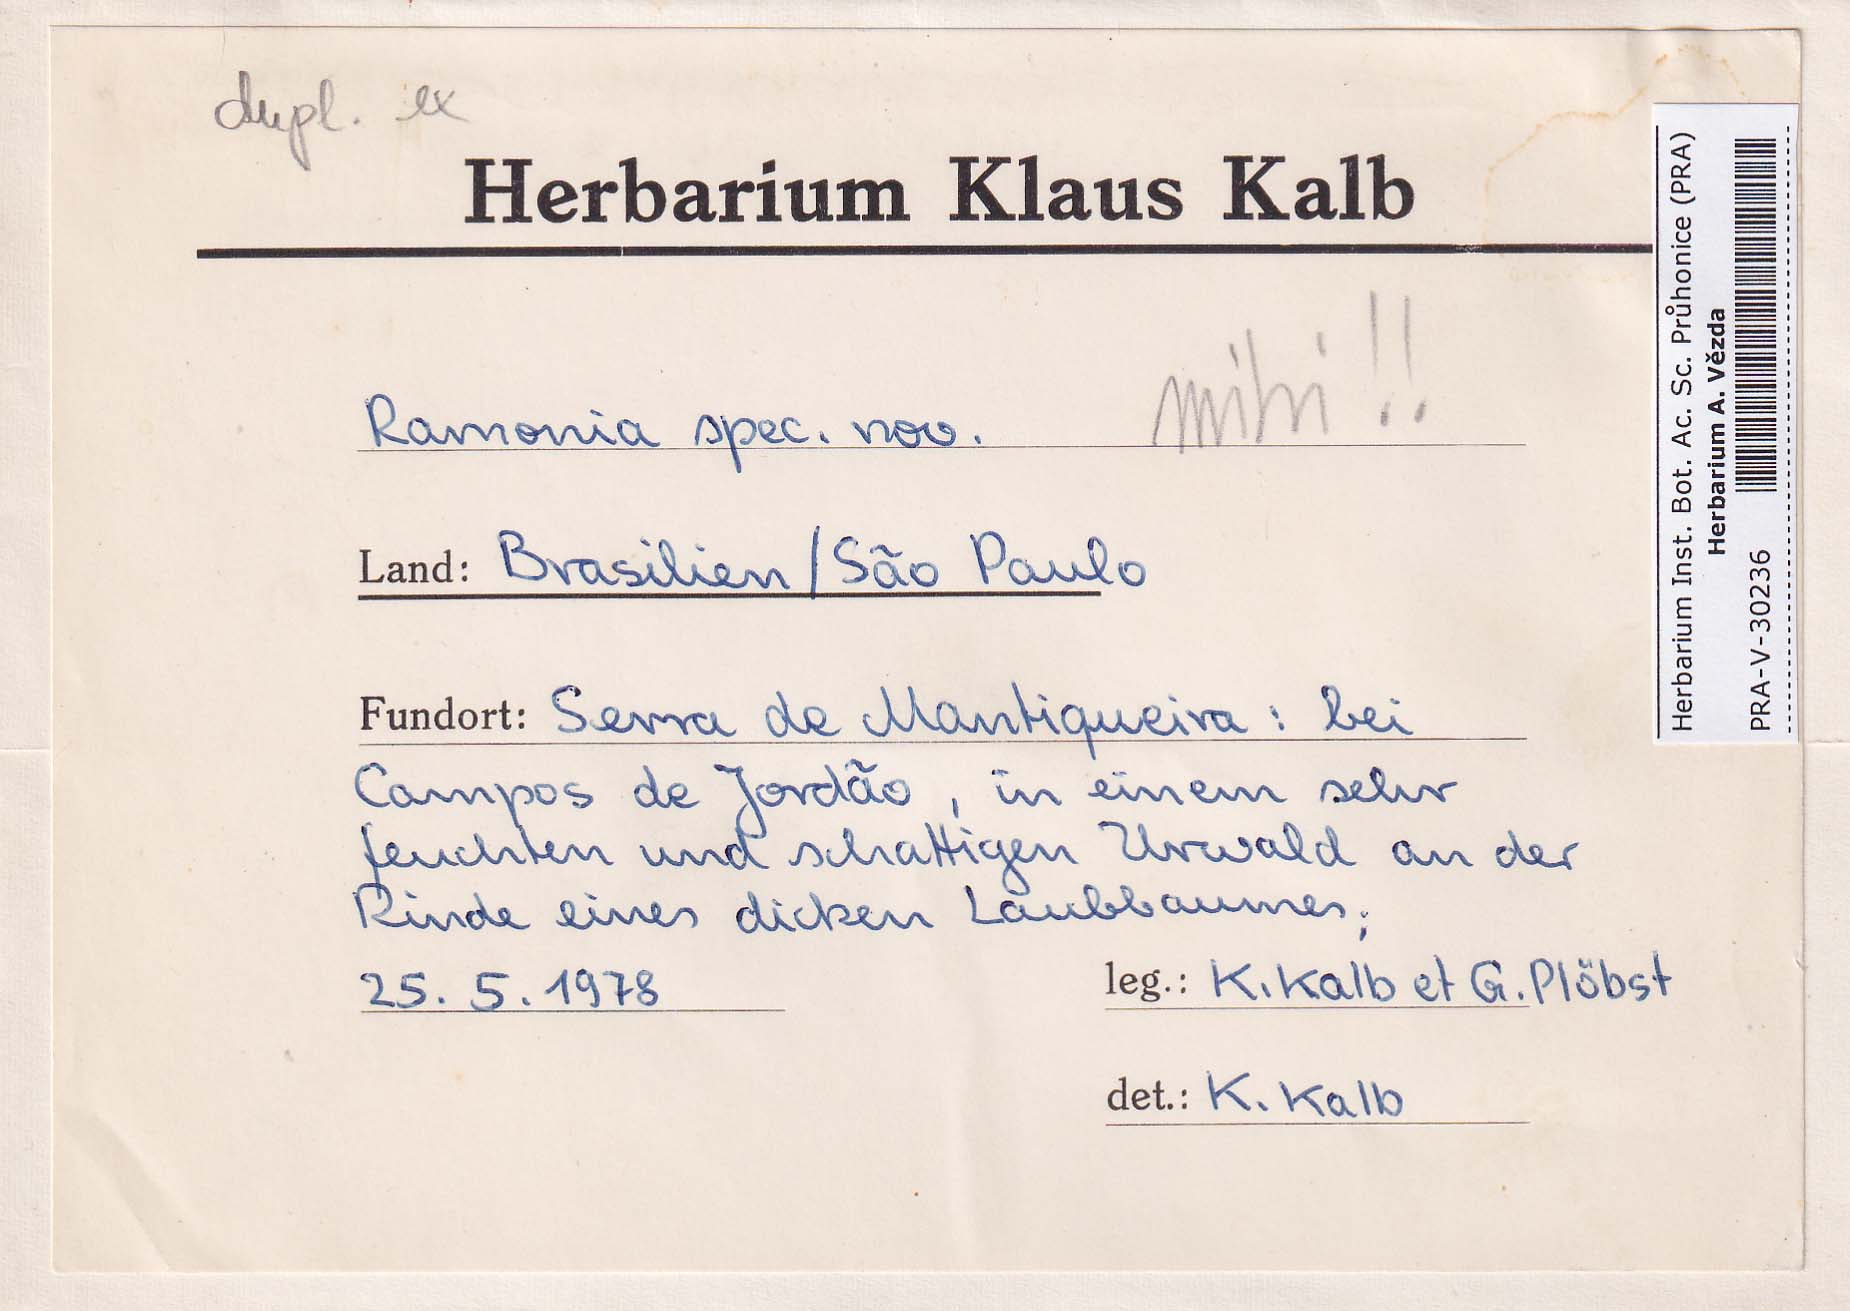 dupl. ex
Herbarium Klaus Kalb
Ramonia spec. nov.
mihi !!
Land: Brasilien/São Paulo
Fundort: Serra de Mantiqueira: bei
Campos de Jordão, in einem sehr
feuchten und schattigen Urwald an der
Rinde eines dicken Laubbaumes;
25. 5. 1978
leg.: K. Kalb et G. Plöbst
det.: K. Kalb
Herbarium Inst. Bot. Ac. Sc. Průhonice (PRA)
Herbarium A. Vězda
PRA-V-30236